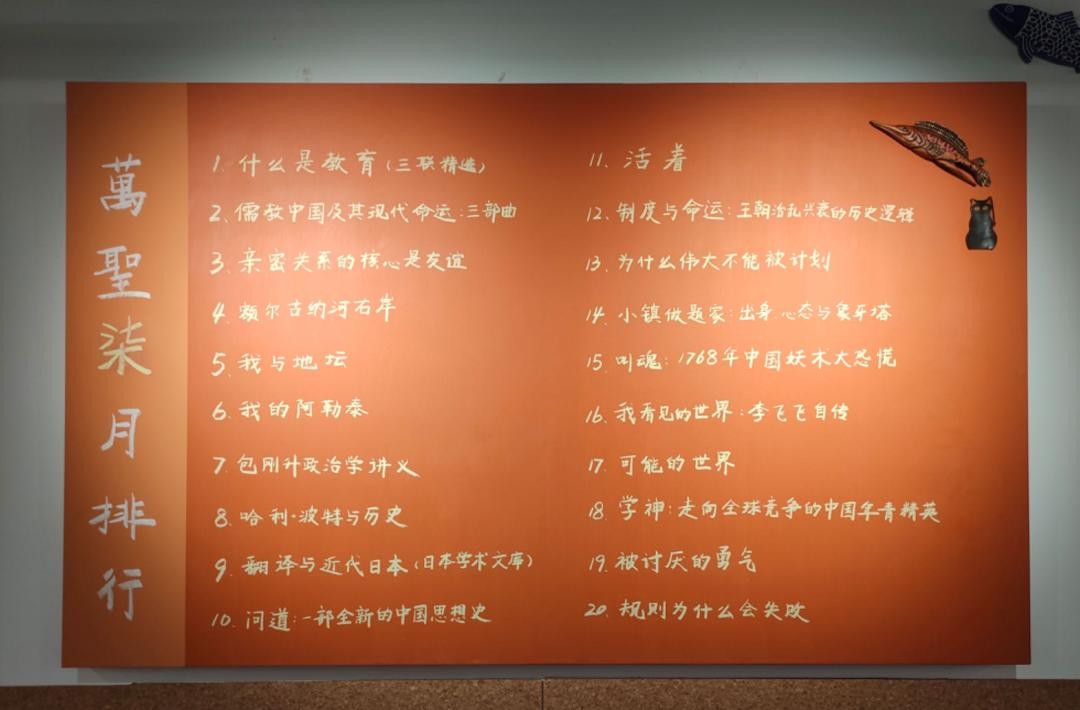 萬聖柒月排行
1. 什么是教育（三联精选）
2. 儒教中国及其现代命运：三部曲
3. 亲密关系的核心是友谊
4. 额尔古纳河右岸
5. 我与地坛
6. 我的阿勒泰
7. 包刚升政治学讲义
8. 哈利·波特与历史
9. 翻译与近代日本（日本学术文库）
10. 问道：一部全新的中国思想史
11. 活着
12. 制度与命运：王朝治乱兴衰的历史逻辑
13. 为什么伟大不能被计划
14. 小镇做题家：出身、心态与象牙塔
15. 叫魂：1768年中国妖术大恐慌
16. 我看见的世界：李飞飞自传
17. 可能的世界
18. 学神：走向全球竞争的中国年青精英
19. 被讨厌的勇气
20. 规则为什么会失败